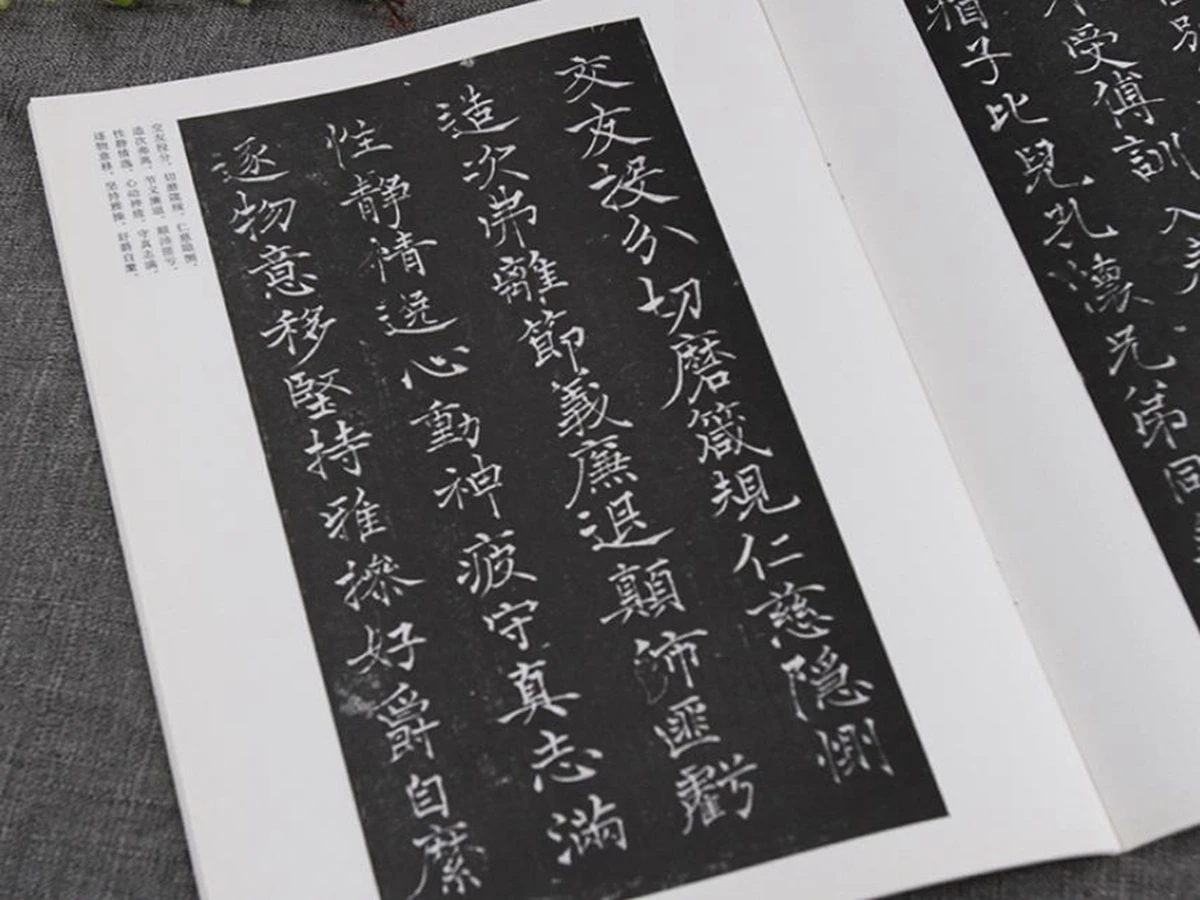 受傅訓入
猶子比兒孔懷兄弟同
交友投分切磨箴規仁慈隱惻
造次弗離節義廉退顛沛匪虧
性靜情逸心動神疲守真志滿
逐物意移堅持雅操好爵自縻
交友投分，切磨箴规。仁慈隐恻，
造次弗离。节义廉退，颠沛匪亏。
性静情逸，心动神疲。守真志满，
逐物意移。坚持雅操，好爵自縻。